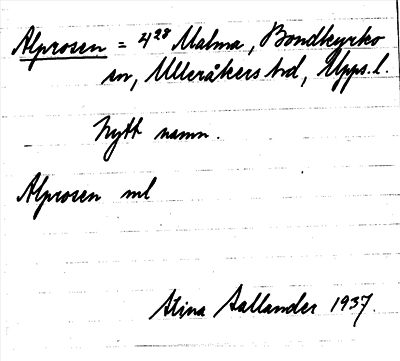 Alprosen = 4²⁸ Malma, Bondkyrko
sn, Ulleråkers hd, Upps. l.
Nytt namn.
Alprosen ml
Stina Sallander 1937.